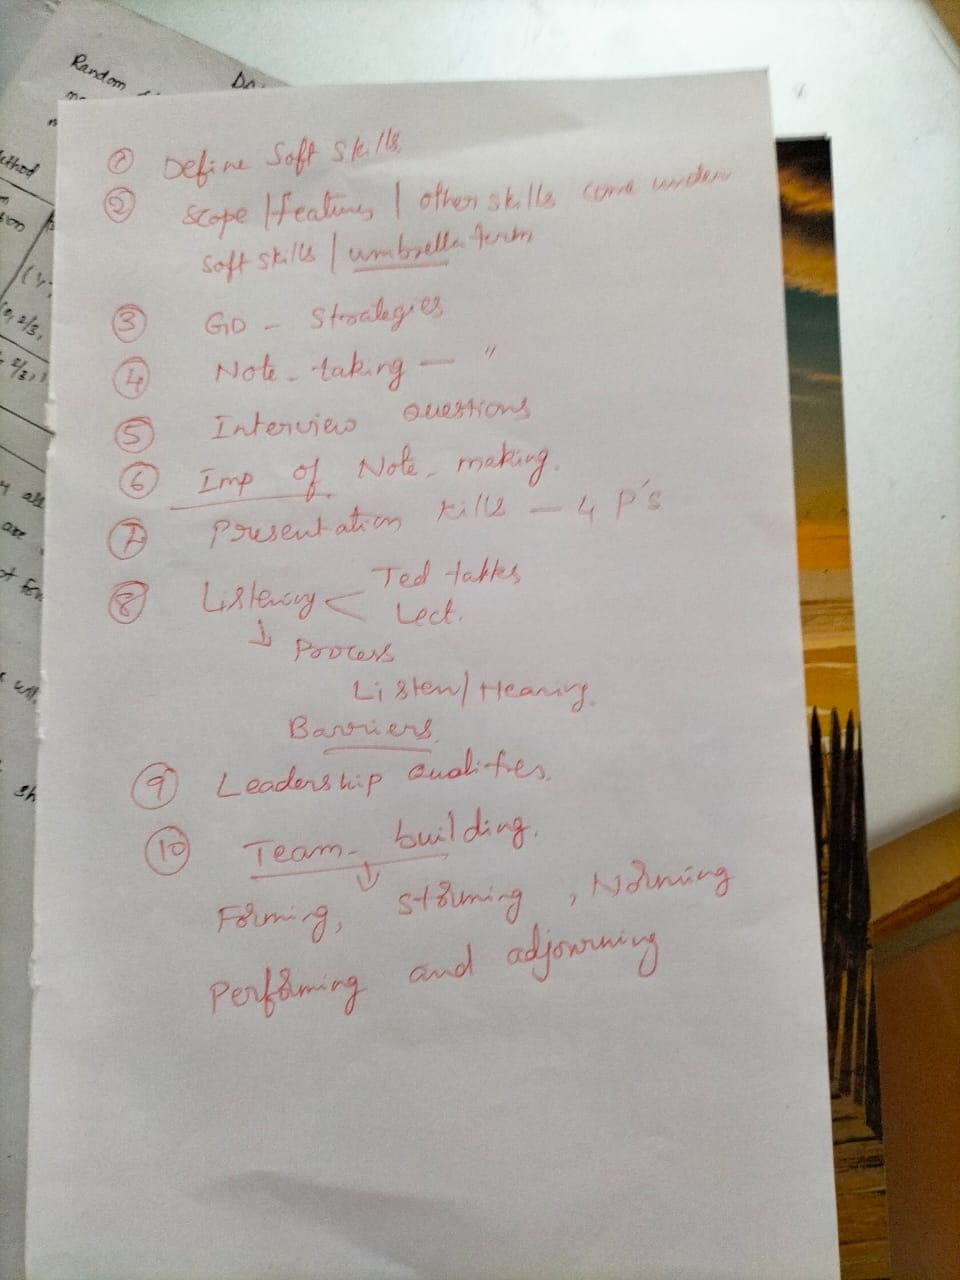 Random
Method
① Define Soft skills.
② Scope / features / other skills come under
soft skills / umbrella term
③ GD - Strategies
④ Note - taking — "
⑤ Interview Questions
⑥ Imp of Note - making.
⑦ Presentation kills — 4 P's
⑧ Listency < Ted talks
Lect.
↓ Process
Listen / Hearing.
Barriers.
⑨ Leadership Qualities.
⑩ Team - building.
↓
Forming, storming, Norming
Performing and adjourning